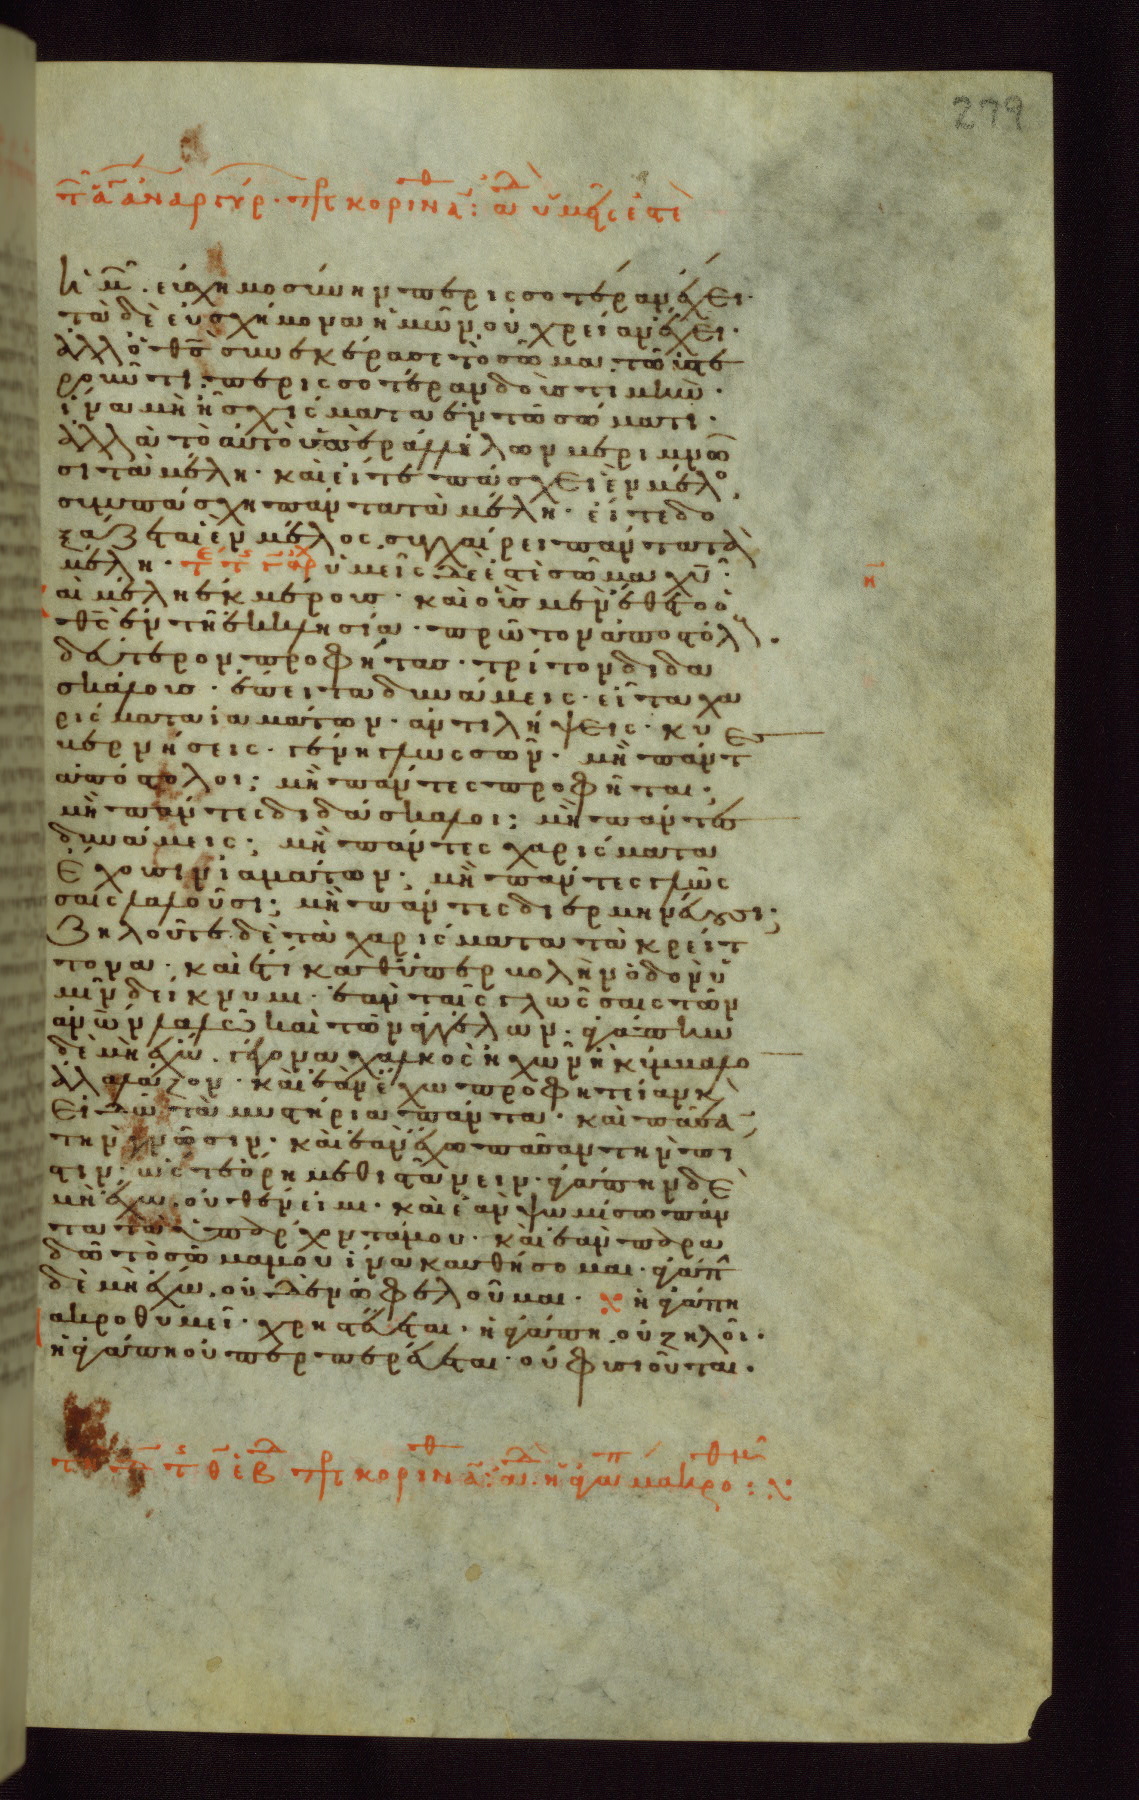 279
τ ἁ ἀναργύρ · πρ κορινθ ἁ : ἀδ ὑμεῖς ἐστὲ
ἡμ · εὐσχημοσύνην περισσοτέραν ἔχει ·
τὰ δὲ εὐσχήμονα ἡμῶν οὐ χρείαν ἔχει ·
ἀλλ ὁ θς συνεκέρασε τὸ σῶμα τῶ ὑστε
ροῦντι περισσοτέραν δοὺς τιμὴν ·
ἵνα μὴ ἦ σχίσματα ἐν τῶ σώματι ·
ἀλλὰ τὸ αὐτὸ ὑπὲρ ἀλλήλων μεριμνῶ
σι τὰ μέλη · καὶ εἴτε πάσχει ἓν μέλος
συμπάσχη πάντα τὰ μέλη · εἴτε δο
ξάζεται ἓν μέλος συγχαίρει πάντα τὰ
μέλη · ὑμεῖς δέ ἐστὲ σῶμα χυ ·
η
καὶ μέλη ἐκ μέρους · καὶ οὓς μὲν ἔθετο ὁ
θς ἐν τῆ ἐκκλησία · πρῶτον ἀποστόλους ·
δεύτερον προφήτας · τρίτον διδα
σκάλους · ἔπειτα δυνάμεις · εἶτα χα
ρίσματα ἰαμάτων · ἀντιλήψεις · κυ
βερνήσεις · γένη γλωσσῶν · μὴ πάντες
ἀπόστολοι ; μὴ πάντες προφῆται ;
μὴ πάντες διδάσκαλοι ; μὴ πάντες
δυνάμεις ; μὴ πάντες χαρίσματα
ἔχουσιν ἰαμάτων ; μὴ πάντες γλώσ
σαις λαλοῦσι ; μὴ πάντες διερμηνεύουσι ;
ζηλοῦτε δὲ τὰ χαρίσματα τὰ κρείτ
τονα · καὶ ἔτι καθ ὑπερβολὴν ὁδὸν ὑ
μῖν δείκνυμι · ἐὰν ταῖς γλώσσαις τῶν
ανων λαλῶ καὶ τῶν ἀγγέλων · ἀγάπην
δὲ μὴ ἔχω · γέγονα χαλκὸς ἠχῶν ἢ κύμβαλον
ἀλαλάζον · καὶ ἐὰν ἔχω προφητείαν καὶ
εἰδῶ τὰ μυστήρια πάντα · καὶ πᾶσαν
τὴν γνῶσιν · καὶ ἐὰν ἔχω πᾶσαν τὴν πί
στιν · ὥστε ὄρη μεθιστάνειν · ἀγάπην δὲ
μὴ ἔχω · οὐθέν εἰμι · καὶ ἐὰν ψωμίσω πάν
τα τὰ ὑπάρχοντά μου · καὶ ἐὰν παρα
δῶ τὸ σῶμα μου ἵνα καυθήσομαι · ἀγάπην
δὲ μὴ ἔχω · οὐδὲν ὠφελοῦμαι · ἡ ἀγάπη
μακροθυμεῖ · χρηστεύεται · ἡ ἀγάπη οὐ ζηλοῖ ·
ἡ ἀγάπη οὐ περπερεύεται · οὐ φυσιοῦται ·
πρ κορινθ ἁ : ἀδ ἡ ἀγάπ μακροθυμ :